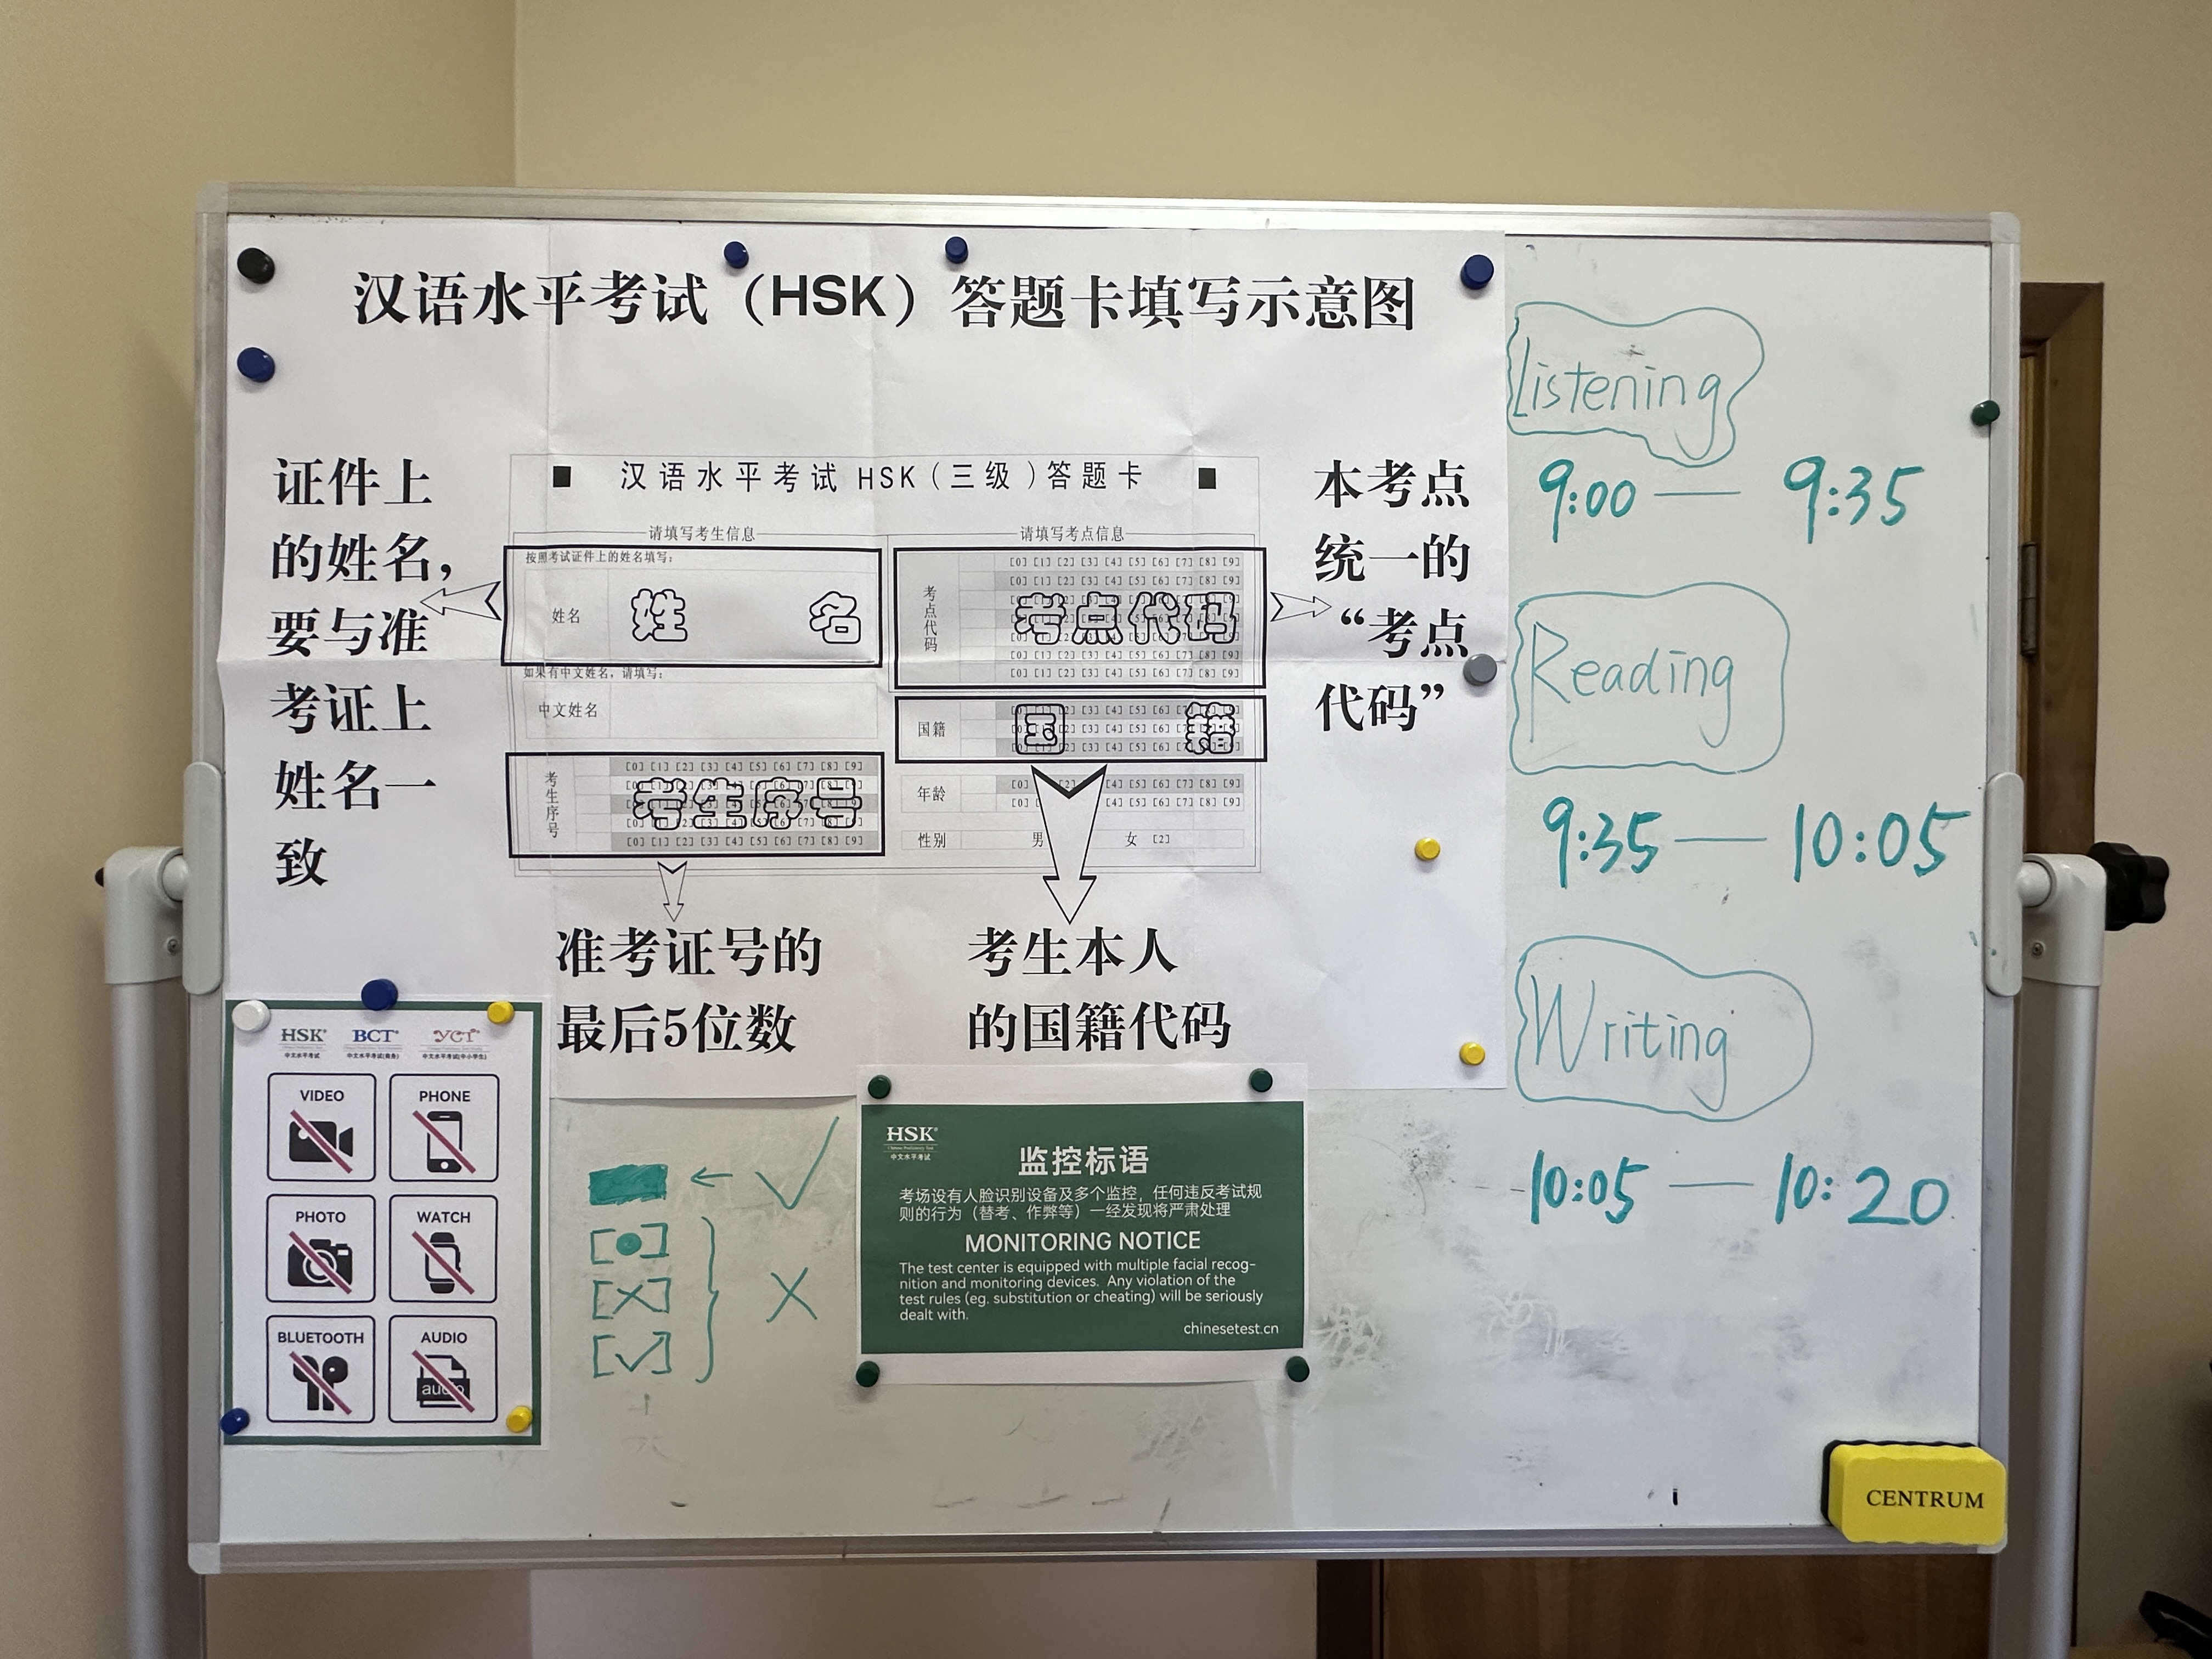 汉语水平考试（HSK）答题卡填写示意图
证件上
的姓名，
要与准
考证上
姓名一
致
汉语水平考试 HSK（三级）答题卡
请填写考生信息
按照考试证件上的姓名填写：
姓名
姓 名
如果有中文姓名，请填写：
中文姓名
考生序号
[0] [1] [2] [3] [4] [5] [6] [7] [8] [9]
考生序号
[0] [1] [2] [3] [4] [5] [6] [7] [8] [9]
请填写考点信息
[0] [1] [2] [3] [4] [5] [6] [7] [8] [9]
[0] [1] [2] [3] [4] [5] [6] [7] [8] [9]
考点代码
考点代码
[0] [1] [2] [3] [4] [5] [6] [7] [8] [9]
[0] [1] [2] [3] [4] [5] [6] [7] [8] [9]
国籍
国 籍
年龄
性别 男 女 [2]
本考点
统一的
“考点
代码”
准考证号的
最后5位数
考生本人
的国籍代码
HSK
中文水平考试
BCT
中文水平考试(商务)
YCT
中文水平考试(中小学生)
VIDEO
PHONE
PHOTO
WATCH
BLUETOOTH
AUDIO
audio
HSK
中文水平考试
监控标语
考场设有人脸识别设备及多个监控，任何违反考试规
则的行为（替考、作弊等）一经发现将严肃处理
MONITORING NOTICE
The test center is equipped with multiple facial recog-
nition and monitoring devices. Any violation of the
test rules (eg. substitution or cheating) will be seriously
dealt with.
chinesetest.cn
Listening
9:00 — 9:35
Reading
9:35 — 10:05
Writing
10:05 — 10:20
CENTRUM